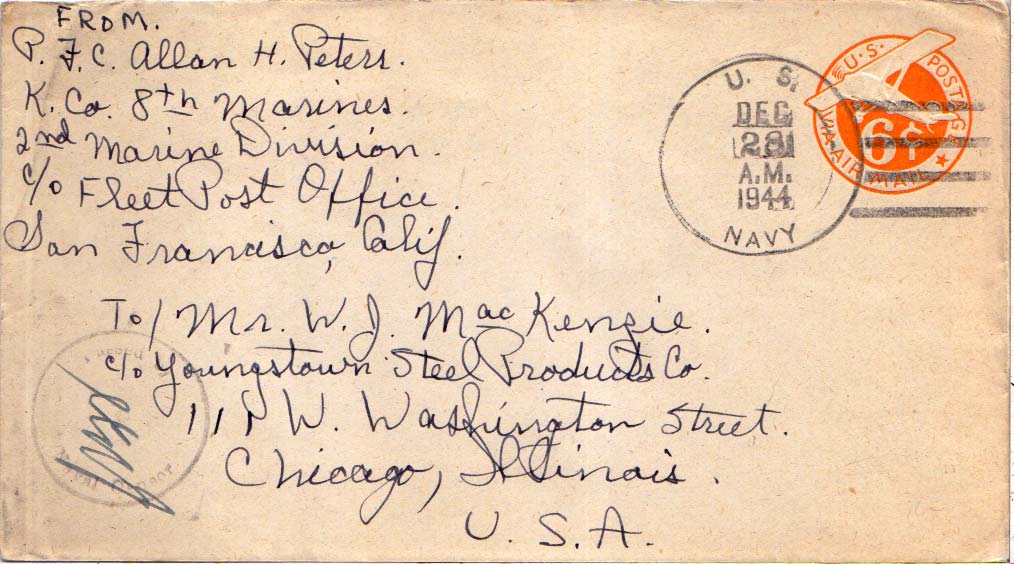 FROM.
P. F. C. Allan H. Peters.
K. Co. 8th Marines.
2nd Marine Division.
c/o Fleet Post Office.
San Francisco, Calif.
U. S.
DEC
28
A.M.
1944
NAVY
U.S. POSTAGE
6¢
VIA AIR MAIL
To/ Mr. W. J. MacKenzie.
c/o Youngstown Steel Products Co.
111 W. Washington Street.
Chicago, Illinois.
U. S. A.
PASSED